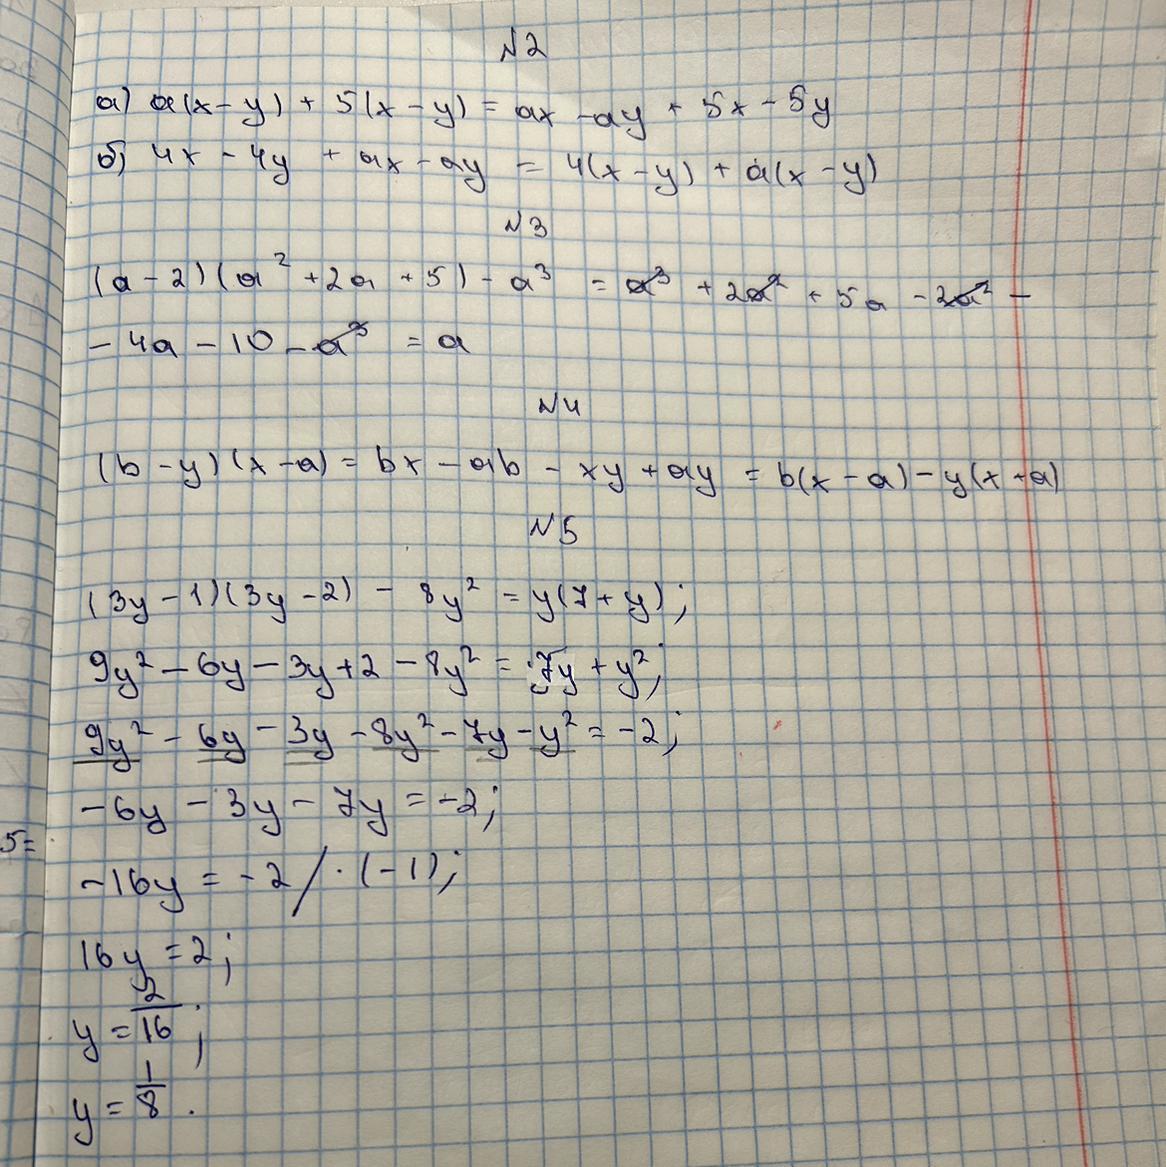 N2
а) a(x-y) + 5(x-y) = ax - ay + 5x - 5y
б) 4x - 4y + ax - ay = 4(x-y) + a(x-y)
N3
(a-2)(a² + 2a + 5) - a³ = a³ + 2a² + 5a - 2a² -
- 4a - 10 - a³ = a
N4
(b-y)(x-a) = bx - ab - xy + ay = b(x-a) - y(x-a)
N5
(3y-1)(3y-2) - 8y² = y(7+y);
9y² - 6y - 3y + 2 - 8y² = 7y + y²;
9y² - 6y - 3y - 8y² - 7y - y² = -2;
-6y - 3y - 7y = -2;
5=
-16y = -2 / · (-1);
16y = 2;
y = 2/16;
y = 1/8.